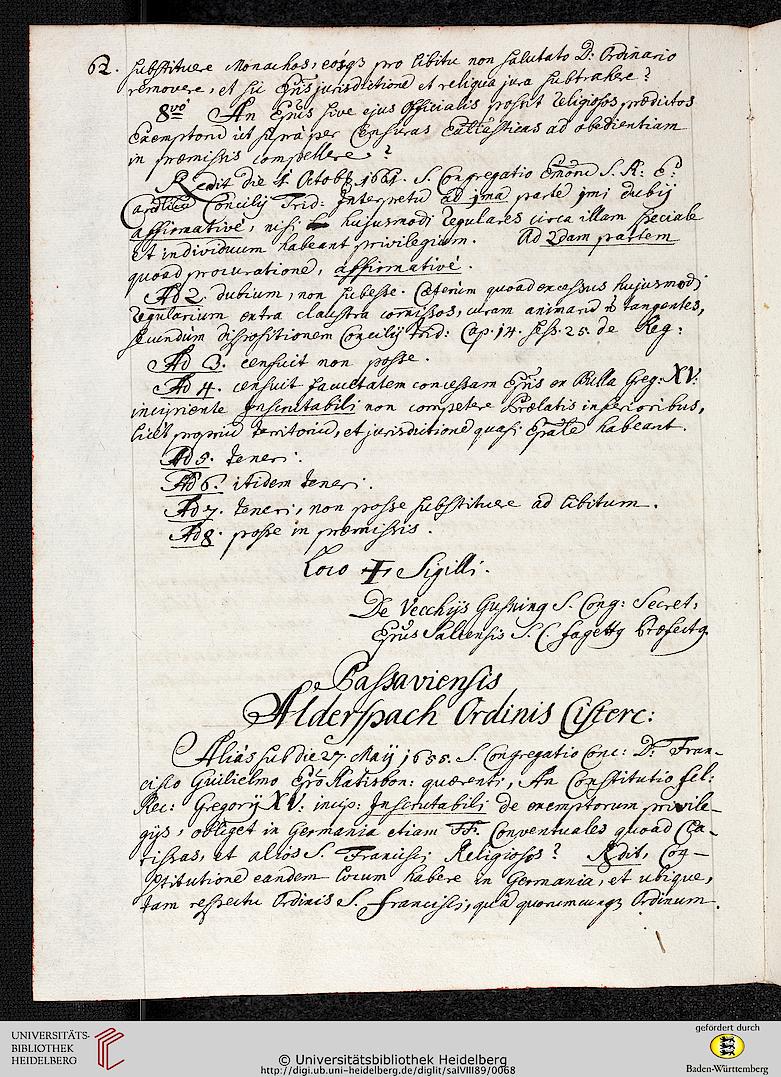 62. substituere Monachos, eosq3 pro libitu non salutato D: Ordinario
removere, et sic Epis jurisdictione et reliqua jura subtrahere?
8vo An Epus sive ejus Officialis possit Religiosos prædictos
Exemptoru ut supra per Censuras Eccleˢticas ad obedientiam
in præmissis compellere?
Redit die 1. Octob: 1661. S. Congregatio S. R: E:
Cardliū Concilij Trid: Interpretū ad jma parte jmi dubij
affirmativè, nisi hujusmodi Regulares circa illam speciale
et individuum habeant privilegium. Ad 2dam partem
quoad procuratione, affirmativè.
Ad 2. dubium, non subesse. Cæterùm quoad excessus hujusmodi
Regularium extra claustra comissos, curam animarū ñ tangentes,
secundùm dispositionem Concilij Trid: Cap. 14. sess. 25. de Reg:
Ad 3. censuit non posse.
Ad 4. censuit facultatem concessam Epis ex Bulla Greg: XV:
incipiente Inscrutabili non competere Prælatis inferioribus,
licèt propriū territoriū, et jurisdictionē quasi Epale habeant.
Ad 5. teneri.
Ad 6. itidem teneri.
Ad 7. teneri, non posse substituere ad libitum.
Ad 8. posse in præmissis.
Loco + Sigilli.
De Vecchijs S. Cong: Secret:
S. C.
Passaviensis
Alderspach Ordinis Cisterc:
Aliàs sub die 27. Maij 1655. S. Congregatio Conc: D: Fran-
cisco Guilielmo Epo Ratisbon: quærenti, An Constitutio fel:
Rec: Gregorij XV: incip: Inscrutabili de exemptorum privile-
gijs, obliget in Germania etiam FF. Conventuales quoad
et alios S. Francisci Religiosos? Rdit, Con-
stitutione eandem locum habere in Germania, et ubique,
tam respectu Ordinis S. Francisci, quā quorumcunq3 Ordinum.
UNIVERSITÄTS-
BIBLIOTHEK
HEIDELBERG
© Universitätsbibliothek Heidelberg
http://digi.ub.uni-heidelberg.de/diglit/salVIII89/0068
gefördert durch
Baden-Württemberg